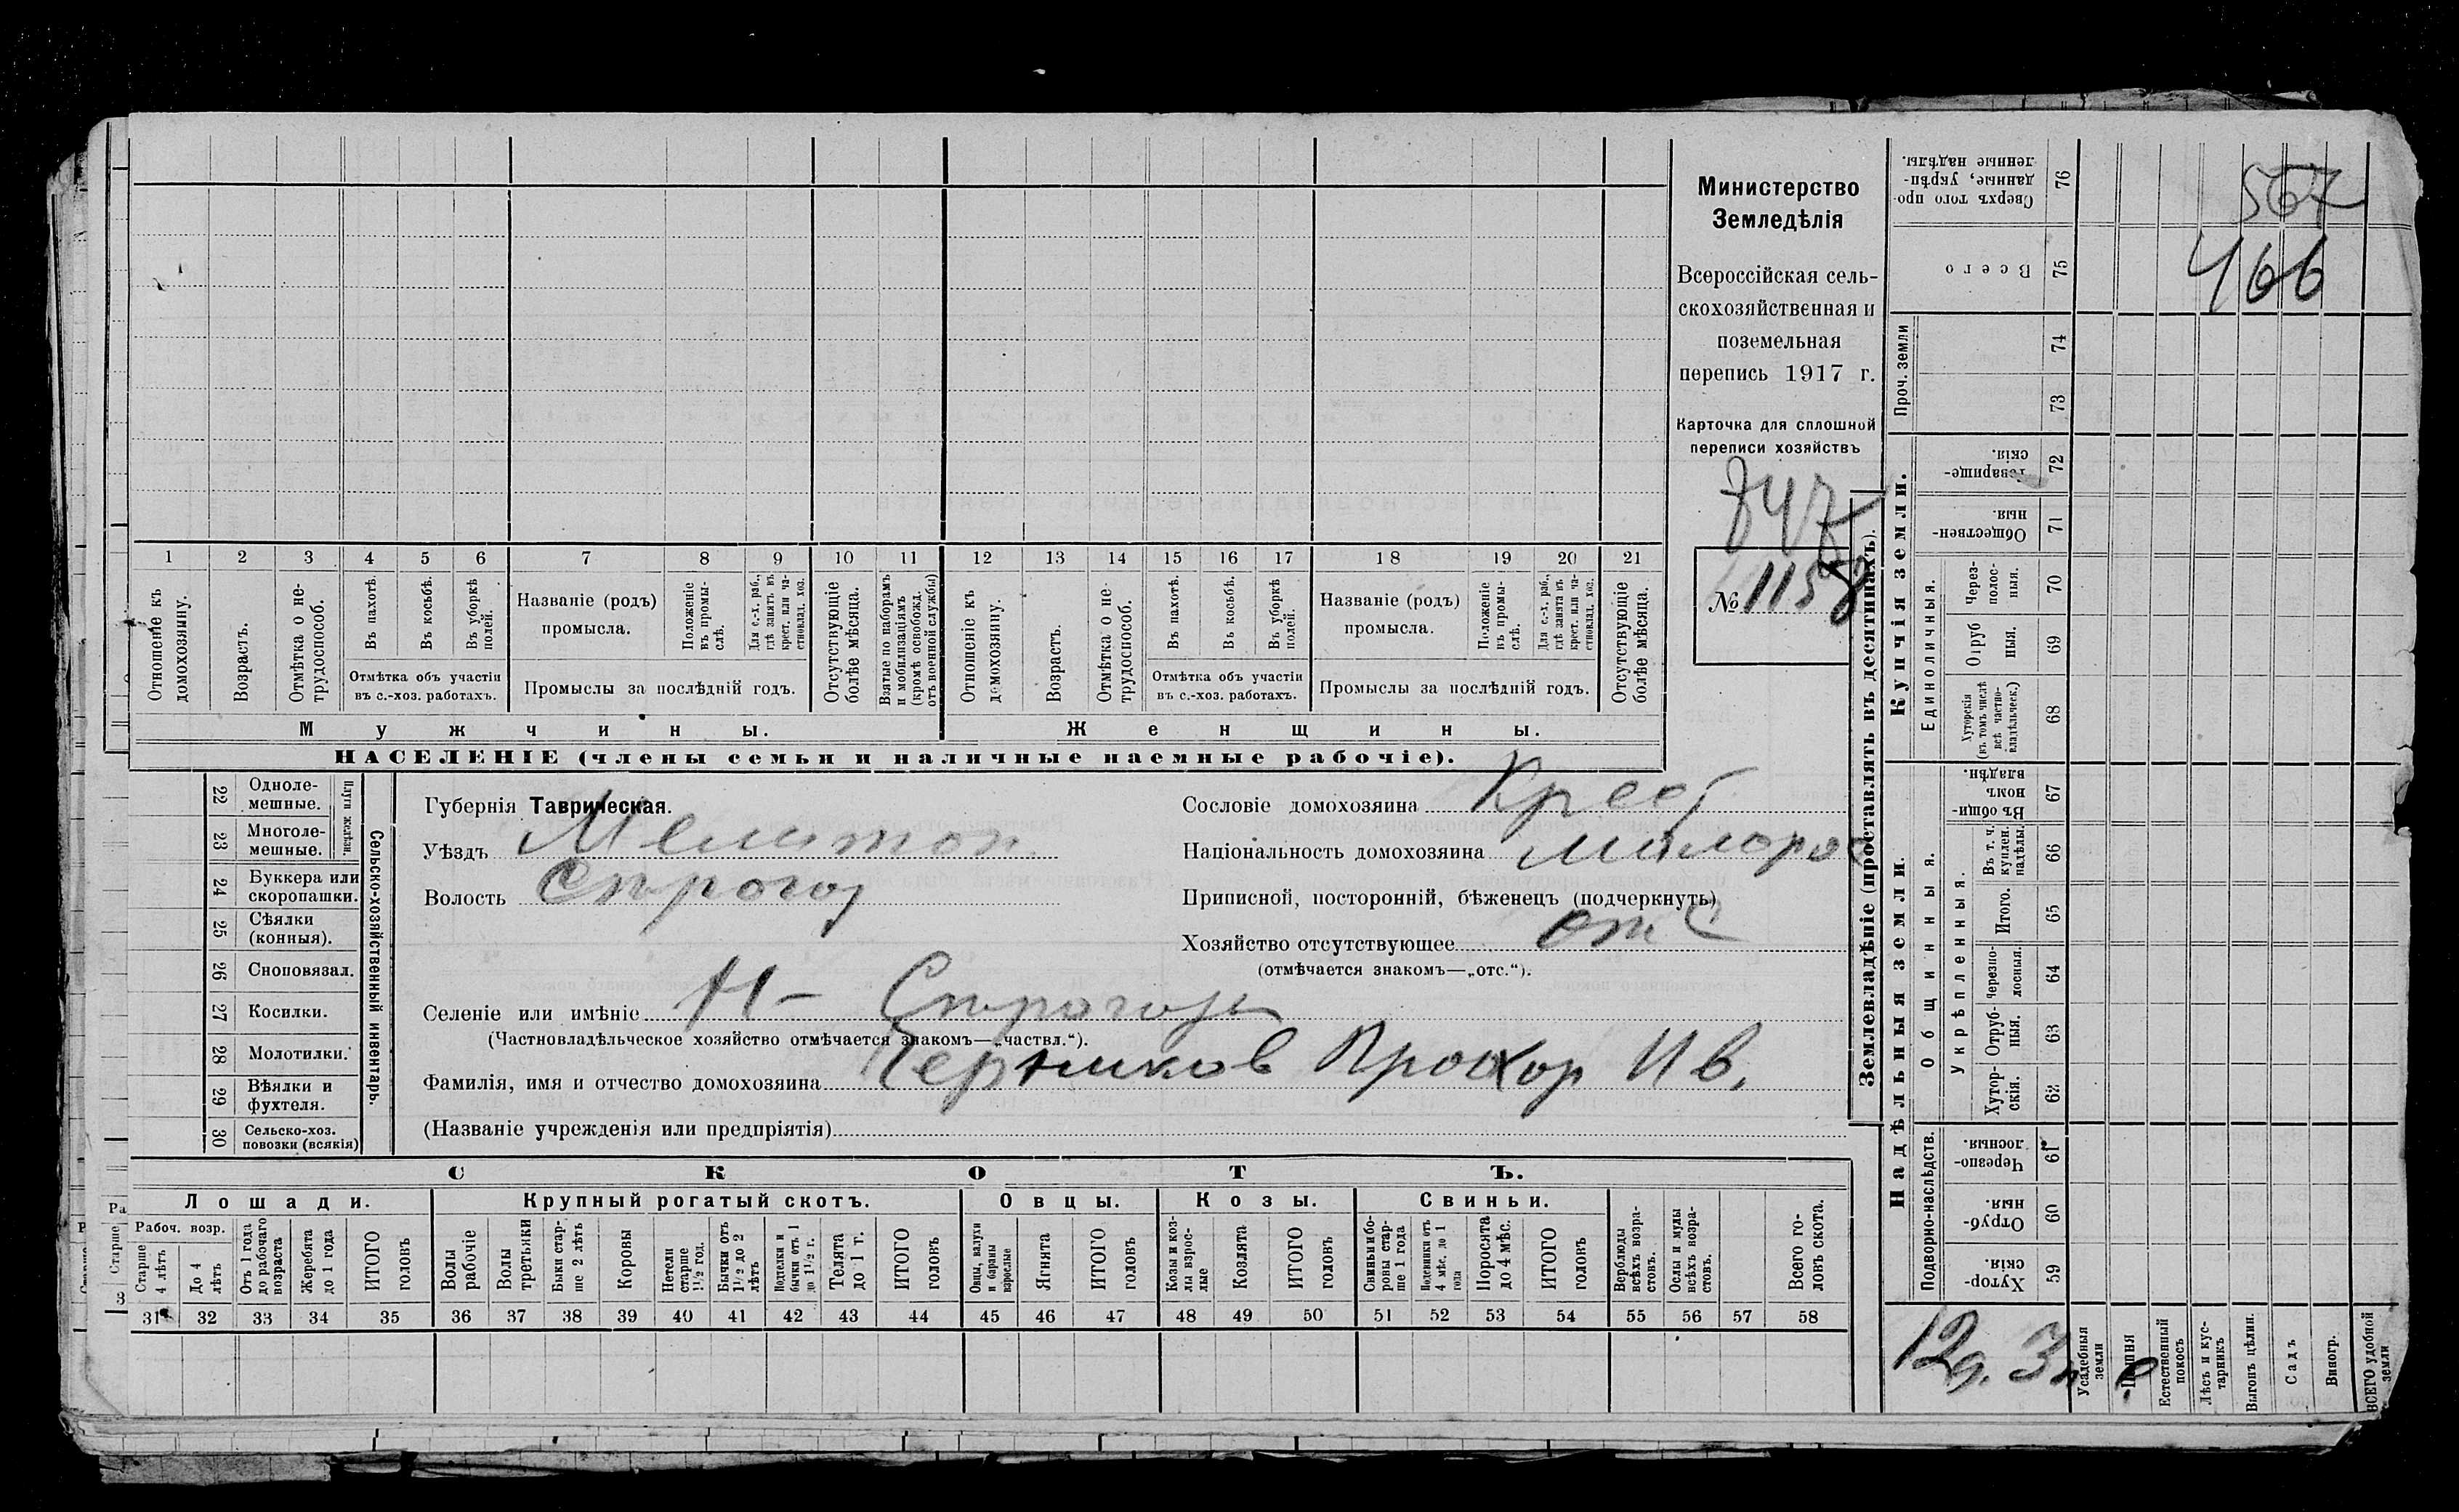 Министерство
Земледѣлія
Всероссійская сель-
скохозяйственная и
поземельная
перепись 1917 г.
Карточка для сплошной
переписи хозяйствъ
747
№ 1158
1 2 3 4 5 6 7 8 9 10 11 12 13 14 15 16 17 18 19 20 21
Отношеніе къ домохозяину.
Возрастъ.
Отмѣтка о не-трудоспособ.
Въ пахотѣ.
Въ косьбѣ.
Въ уборкѣ полей.
Отмѣтка объ участіи
въ с.-хоз. работахъ.
Названіе (родъ)
промысла.
Положеніе въ промы-слѣ.
Для с.-х. раб., гдѣ занятъ въ крест. или ча-стновлад. хоз.
Промыслы за послѣдній годъ.
Отсутствующіе болѣе мѣсяца.
Взятые по наборамъ и мобилизаціямъ (кромѣ освобожд. отъ военной службы)
Отношеніе къ домохозяину.
Возрастъ.
Отмѣтка о не-трудоспособ.
Въ пахотѣ.
Въ косьбѣ.
Въ уборкѣ полей.
Отмѣтка объ участіи
въ с.-хоз. работахъ.
Названіе (родъ)
промысла.
Положеніе въ промы-слѣ.
Для с.-х. раб., гдѣ занятъ въ крест. или ча-стновлад. хоз.
Промыслы за послѣдній годъ.
Отсутствующіе болѣе мѣсяца.
Мужчины.
Женщины.
НАСЕЛЕНІЕ (члены семьи и наличные наемные рабочіе).
22 Одноле-мешные.
23 Многоле-мешные.
Плуги желѣзн.
24 Буккера или скоропашки.
25 Сѣялки (конныя).
26 Сноповязал.
27 Косилки.
28 Молотилки.
29 Вѣялки и фухтеля.
30 Сельско-хоз. повозки (всякія)
Сельско-хозяйственный инвентарь.
Губернія Таврическая.
Уѣздъ Мелитоп.
Волость Строгоз
Сословіе домохозяина Крест
Національность домохозяина малорос
Приписной, посторонній, бѣженецъ (подчеркнуть)
Хозяйство отсутствующее отс
(отмѣчается знакомъ—„отс.“).
Селеніе или имѣніе Н- Строгозы
(Частновладѣльческое хозяйство отмѣчается знакомъ—„частвл.“).
Фамилія, имя и отчество домохозяина Черников Прохор Ив.
(Названіе учрежденія или предпріятія)
СКОТЪ.
Лошади.
Крупный рогатый скотъ.
Овцы.
Козы.
Свиньи.
Рабоч. возр.
Старше 4 лѣтъ
До 4 лѣтъ
Отъ 1 года до рабочаго возраста
Жеребята до 1 года
ИТОГО головъ
Волы рабочіе
Волы третьяки
Быки стар-ше 2 лѣтъ
Коровы
Нетели старше 1½ год.
Бычки отъ 1½ до 2 лѣтъ
Подтелки и бычки отъ 1 до 1½ г.
Телята до 1 г.
ИТОГО головъ
Овцы, валухи и бараны взрослые
Ягнята
ИТОГО головъ
Козы и коз-лы взрос-лые
Козлята
ИТОГО головъ
Свиньи и бо-ровы стар-ше 1 года
Подсвинки отъ 4 мѣс. до 1 года
Поросята до 4 мѣс.
ИТОГО головъ
Верблюды всѣхъ возра-стовъ.
Ослы и мулы всѣхъ возра-стовъ.
Всего го-ловъ скота.
31 32 33 34 35 36 37 38 39 40 41 42 43 44 45 46 47 48 49 50 51 52 53 54 55 56 57 58
Землевладѣніе (проставлять въ десятинахъ).
Купчія земли.
Надѣльныя земли.
567
466
Сверхъ того про-данные, укрѣп-ленные надѣлы. 76
Всего 75
Проч. земли
74
73
Товарище-скія. 72
Обществен-ныя. 71
Единоличныя.
Через-полос-ныя. 70
Отруб ныя. 69
Хуторскія (въ томъ числѣ всѣ частно-владѣльческ.) 68
Общинныя.
Въ общи-номъ владѣн. 67
Укрѣпленныя.
Въ т. ч. куплен. надѣлы. 66
Итого. 65
Черезпо-лосныя. 64
Отруб-ныя. 63
Хутор-скія. 62
Подворно-наслѣдств.
Черезпо-лосныя. 61
Отруб-ныя. 60
Хутор-скія. 59
12д. 3
Усадебныя земли
Пашня
Естественный покосъ
Лѣсъ и кус-тарникъ
Выгонъ цѣлин.
Садъ
Виногр.
ВСЕГО удобной земли